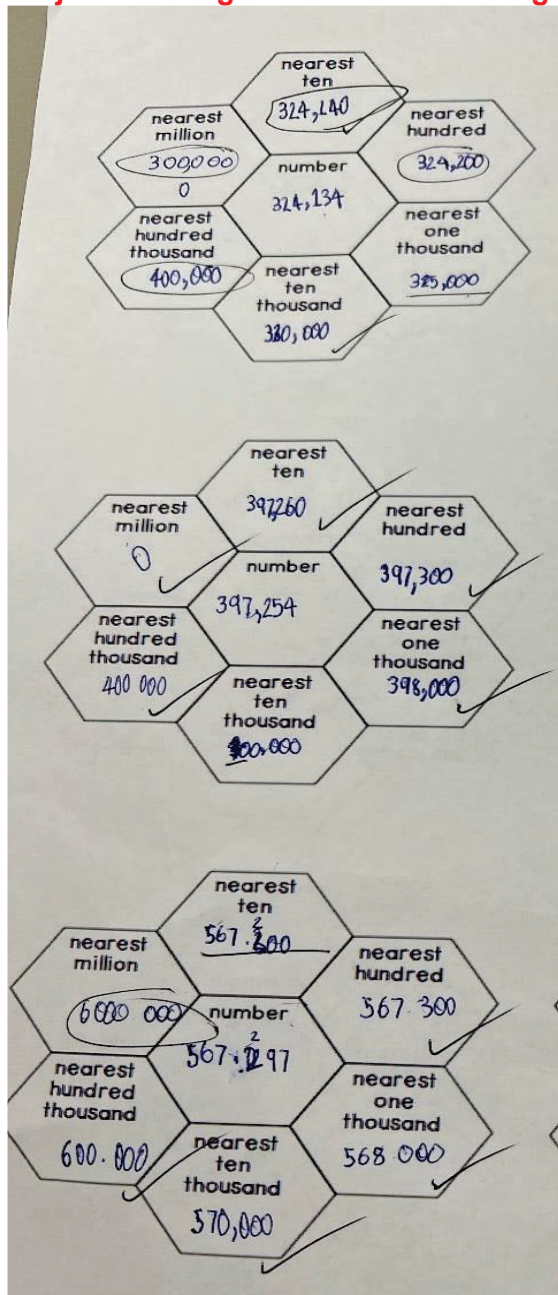 nearest
ten
324,240
nearest
million
300,000
0
nearest
hundred
324,200
number
324,134
nearest
hundred
thousand
400,000
nearest
one
thousand
325,000
nearest
ten
thousand
330,000
nearest
ten
397,260
nearest
million
0
nearest
hundred
397,300
number
397,254
nearest
hundred
thousand
400 000
nearest
one
thousand
398,000
nearest
ten
thousand
nearest
ten
nearest
million
6000 000
nearest
hundred
567.300
number
nearest
hundred
thousand
600.000
nearest
one
thousand
568 000
nearest
ten
thousand
570,000